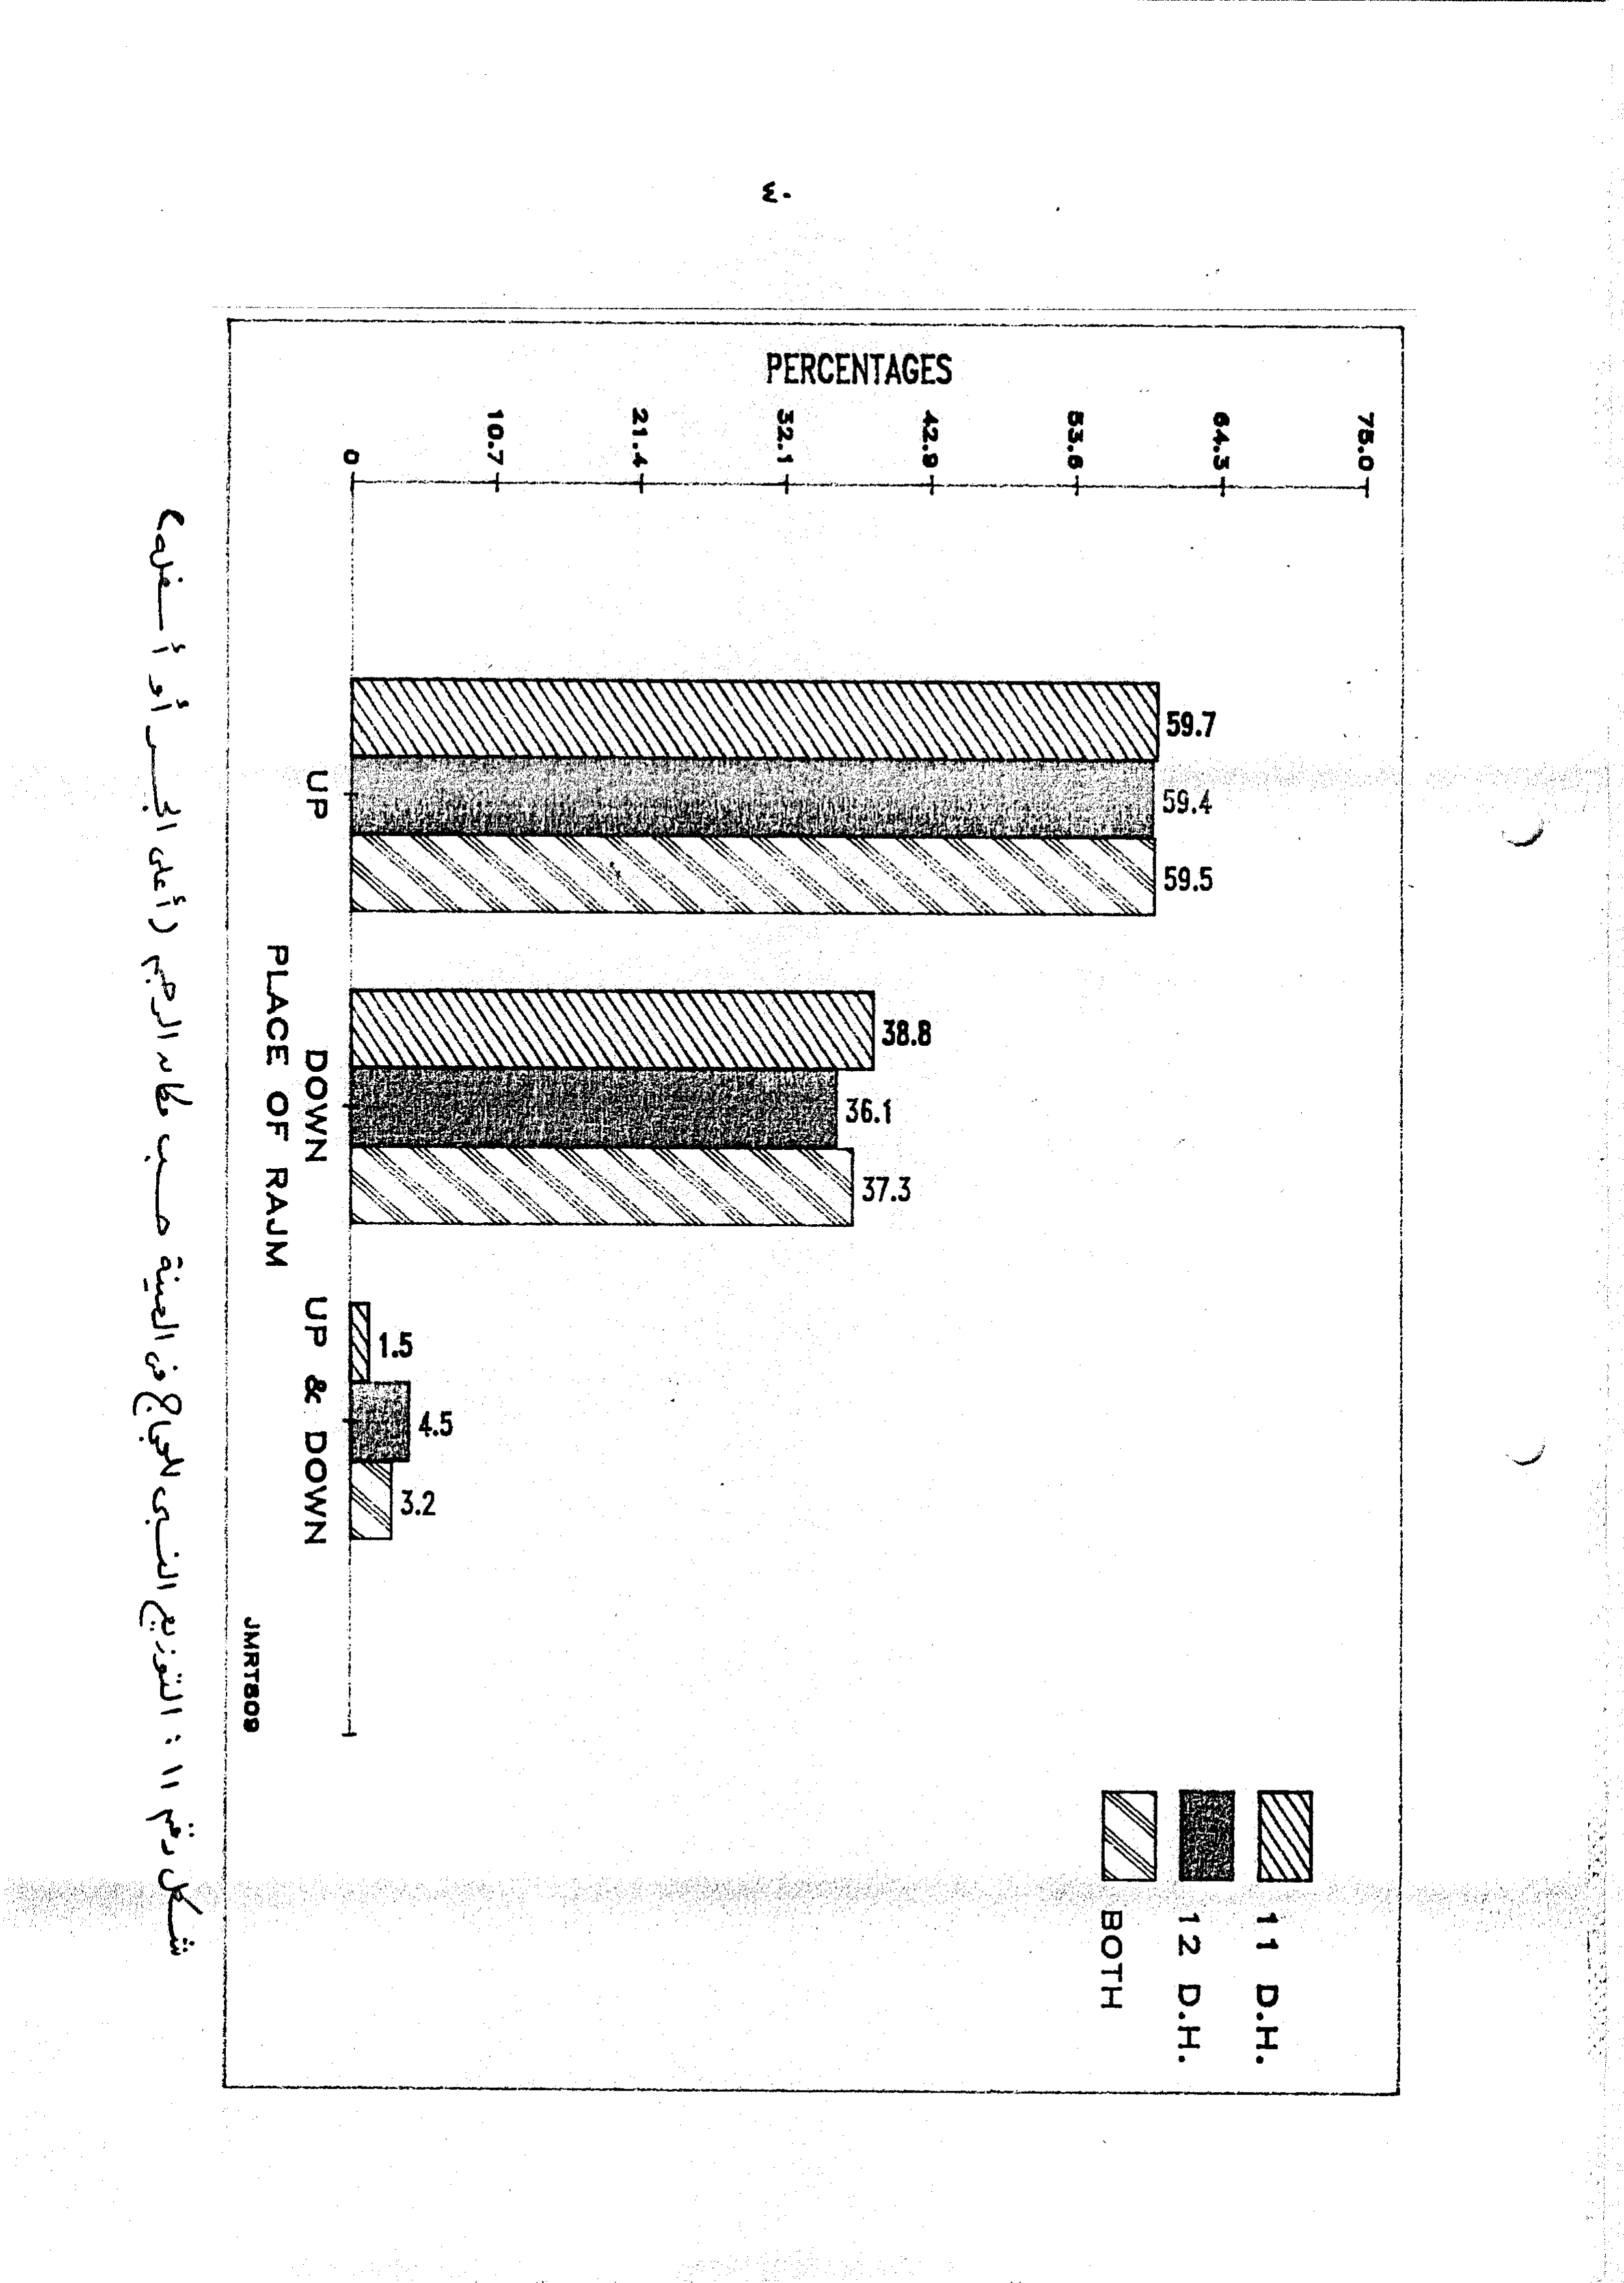 ٤٠
PERCENTAGES
75.0
64.3
53.6
42.9
32.1
21.4
10.7
0
59.7
59.4
59.5
38.8
36.1
37.3
1.5
4.5
3.2
UP
DOWN
UP & DOWN
PLACE OF RAJM
JMRT809
11 D.H.
12 D.H.
BOTH
شكل رقم ١١ : التوزيع النسبى للحجاج فى العينة حسب مكان الرجم (أعلى الجسر أو أسفله)